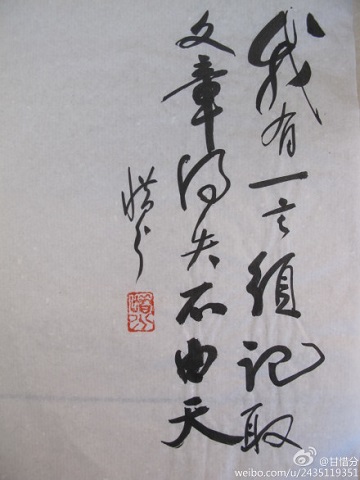 我有一言须记取
文章得失不由天
惜分
惜分
@甘惜分
weibo.com/u/2435119351